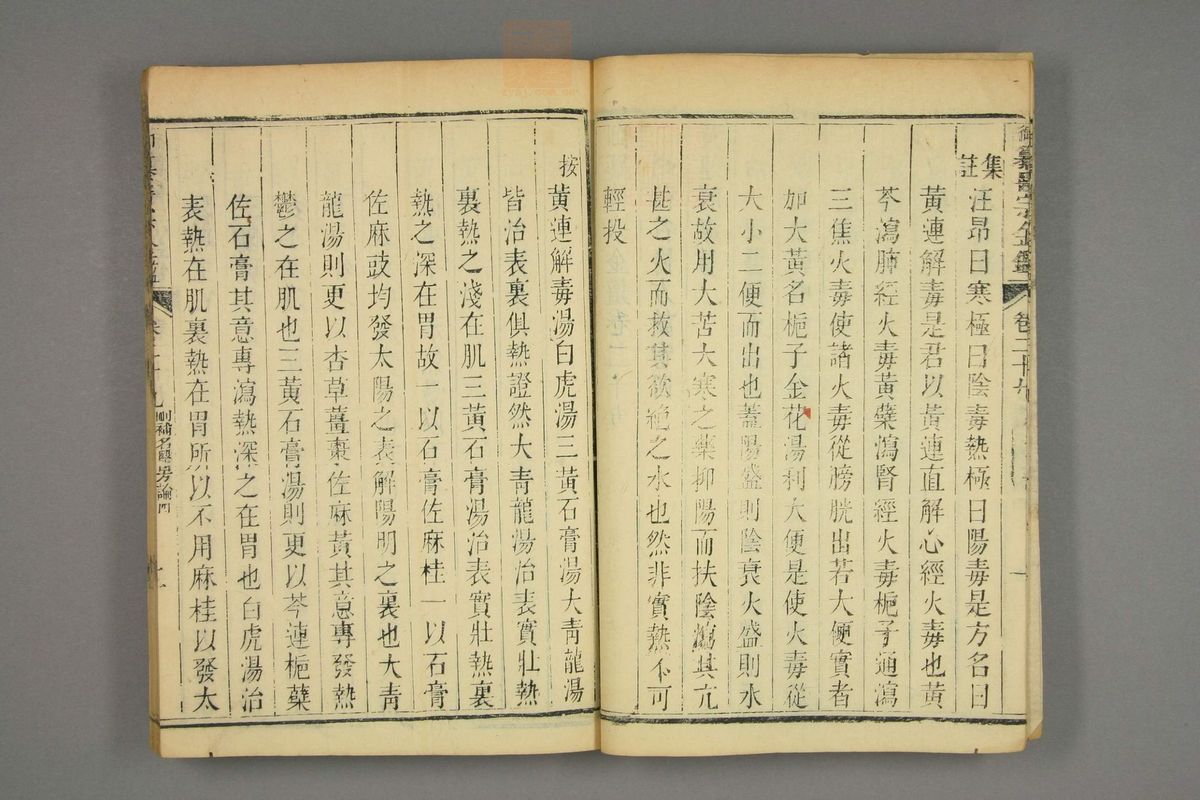 御纂醫宗金鑑 卷二十九
集註
汪昂曰寒極曰陰毒熱極曰陽毒是方名曰
黃連解毒是君以黃連直解心經火毒也黃
芩瀉肺經火毒黃蘗瀉腎經火毒梔子通瀉
三焦火毒使諸火毒從膀胱出若大便實者
加大黃名梔子金花湯利大便是使火毒從
大小二便而出也蓋陽盛則陰衰火盛則水
衰故用大苦大寒之藥抑陽而扶陰瀉其亢
甚之火而救其欲絕之水也然非實熱不可
輕投
按黃連解毒湯白虎湯三黃石膏湯大青龍湯
皆治表裏俱熱證然大青龍湯治表實壯熱
裏熱之淺在肌三黃石膏湯治表實壯熱裏
熱之深在胃故一以石膏佐麻桂一以石膏
佐麻豉均發太陽之表解陽明之裏也大青
龍湯則更以杏草薑棗佐麻黃其意專發熱
鬱之在肌也三黃石膏湯則更以芩連梔蘗
佐石膏其意專瀉熱深之在胃也白虎湯治
表熱在肌裏熱在胃所以不用麻桂以發太
刪補名醫方論四